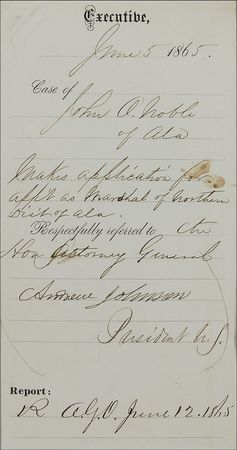 Executive,
June 5 1865.
Case of
John A. Noble
of Ala
Makes application for
appt as Marshal of Northern
Dist of Ala.
Respectfully referred to the
Hon Attorney General
Andrew Johnson
President U.S.
Report:
R A.G.O. June 12. 1865